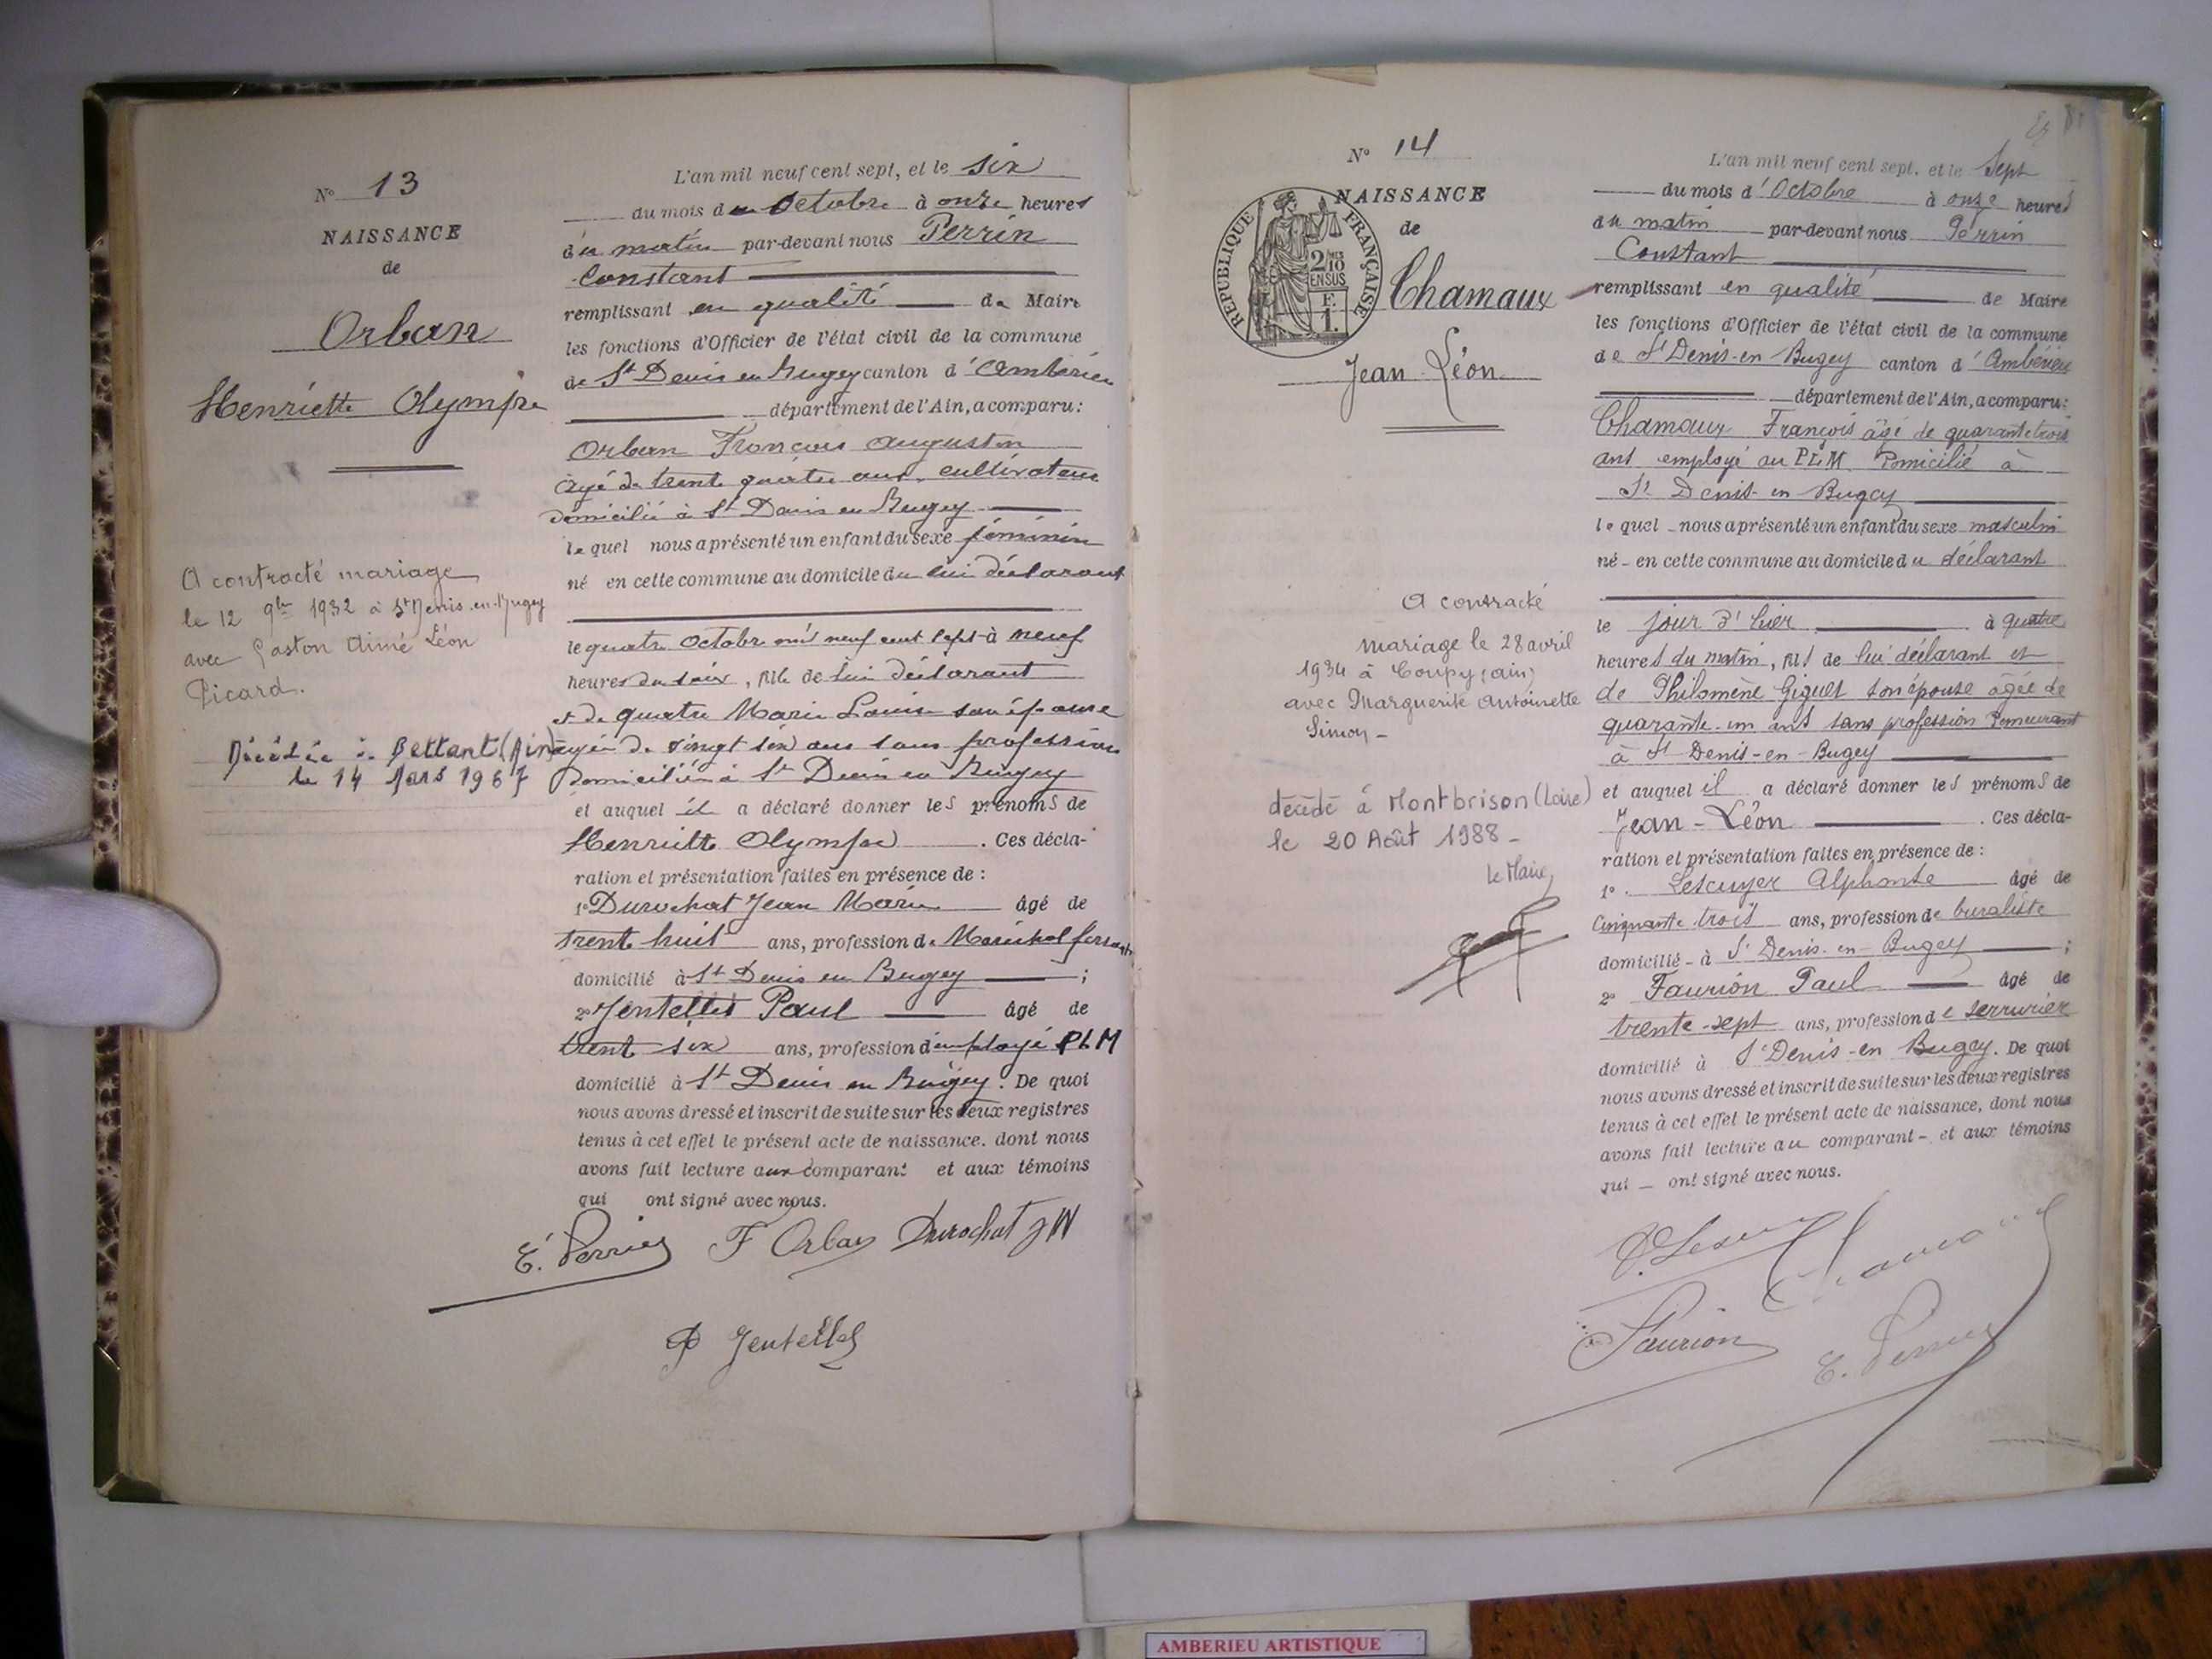 N° 13
NAISSANCE
de
Orban
Henriette Olympe
A contracté mariage
le 12 9bre 1932 à St Denis-en-Bugey
avec Gaston Aimé Léon
Picard.
Décédée à Bettant (Ain)
le 14 Mars 1967
L'an mil neuf cent sept, et le six
du mois de Octobre à onze heures
du matin par-devant nous Perrin
Constant
remplissant en qualité de Maire
les fonctions d'Officier de l'état civil de la commune
de St Denis en Bugey canton d'Ambérieu
département de l'Ain, a comparu:
Orban François Augustin
âgé de trente quatre ans, cultivateur
domicilié à St Denis en Bugey
lequel nous a présenté un enfant du sexe féminin
né en cette commune au domicile du lui déclarant
le quatre octobre mil neuf cent sept à neuf
heures du soir, fille de lui déclarant
et de quatre Marie Louise son épouse
âgée de vingt six ans sans profession
domiciliée à St Denis en Bugey
et auquel il a déclaré donner les prénoms de
Henriette Olympe. Ces décla-
ration et présentation faites en présence de :
1° Durochat Jean Marie âgé de
trente huit ans, profession de Maréchal ferrant
domicilié à St Denis en Bugey ;
2° Jentelles Paul âgé de
trente six ans, profession d'employé PLM
domicilié à St Denis en Bugey. De quoi
nous avons dressé et inscrit de suite sur les deux registres
tenus à cet effet le présent acte de naissance, dont nous
avons fait lecture aux comparant et aux témoins
qui ont signé avec nous.
E. Perrin F Orban Durochat JM
P Jentelles
N° 14
NAISSANCE
de
RÉPUBLIQUE FRANÇAISE
2/10 EN SUS
F. 1.
Chamaux
Jean Léon
A contracté
mariage le 28 avril
1934 à Coupy (ain)
avec Marguerite Antoinette
Simon -
décédé à Montbrison (Loire)
le 20 Août 1988 -
Le Maire,
L'an mil neuf cent sept, et le Sept
du mois d'Octobre à onze heures
du matin par-devant nous Perrin
Constant
remplissant en qualité de Maire
les fonctions d'Officier de l'état civil de la commune
de St Denis-en-Bugey canton d'Ambérieu
département de l'Ain, a comparu:
Chamaux François âgé de quarante trois
ans employé au PLM Domicilié à
St Denis-en Bugey
lequel nous a présenté un enfant du sexe masculin
né - en cette commune au domicile du déclarant
le jour d'hier à quatre
heures du matin, fils de lui déclarant et
de Philomène Giguet son épouse âgée de
quarante-un ans sans profession Demeurant
à St Denis-en-Bugey
et auquel il a déclaré donner les prénoms de
Jean-Léon. Ces décla-
ration et présentation faites en présence de :
1° Lescuyer Alphonse âgé de
Cinquante trois ans, profession de buraliste
domicilié - à St Denis-en-Bugey ;
2° Faurion Paul âgé de
trente-sept ans, profession de serrurier
domicilié à St Denis-en Bugey. De quoi
nous avons dressé et inscrit de suite sur les deux registres
tenus à cet effet le présent acte de naissance, dont nous
avons fait lecture au comparant - et aux témoins
qui - ont signé avec nous.
Chamaux
Faurion
E. Perrin
AMBERIEU ARTISTIQUE